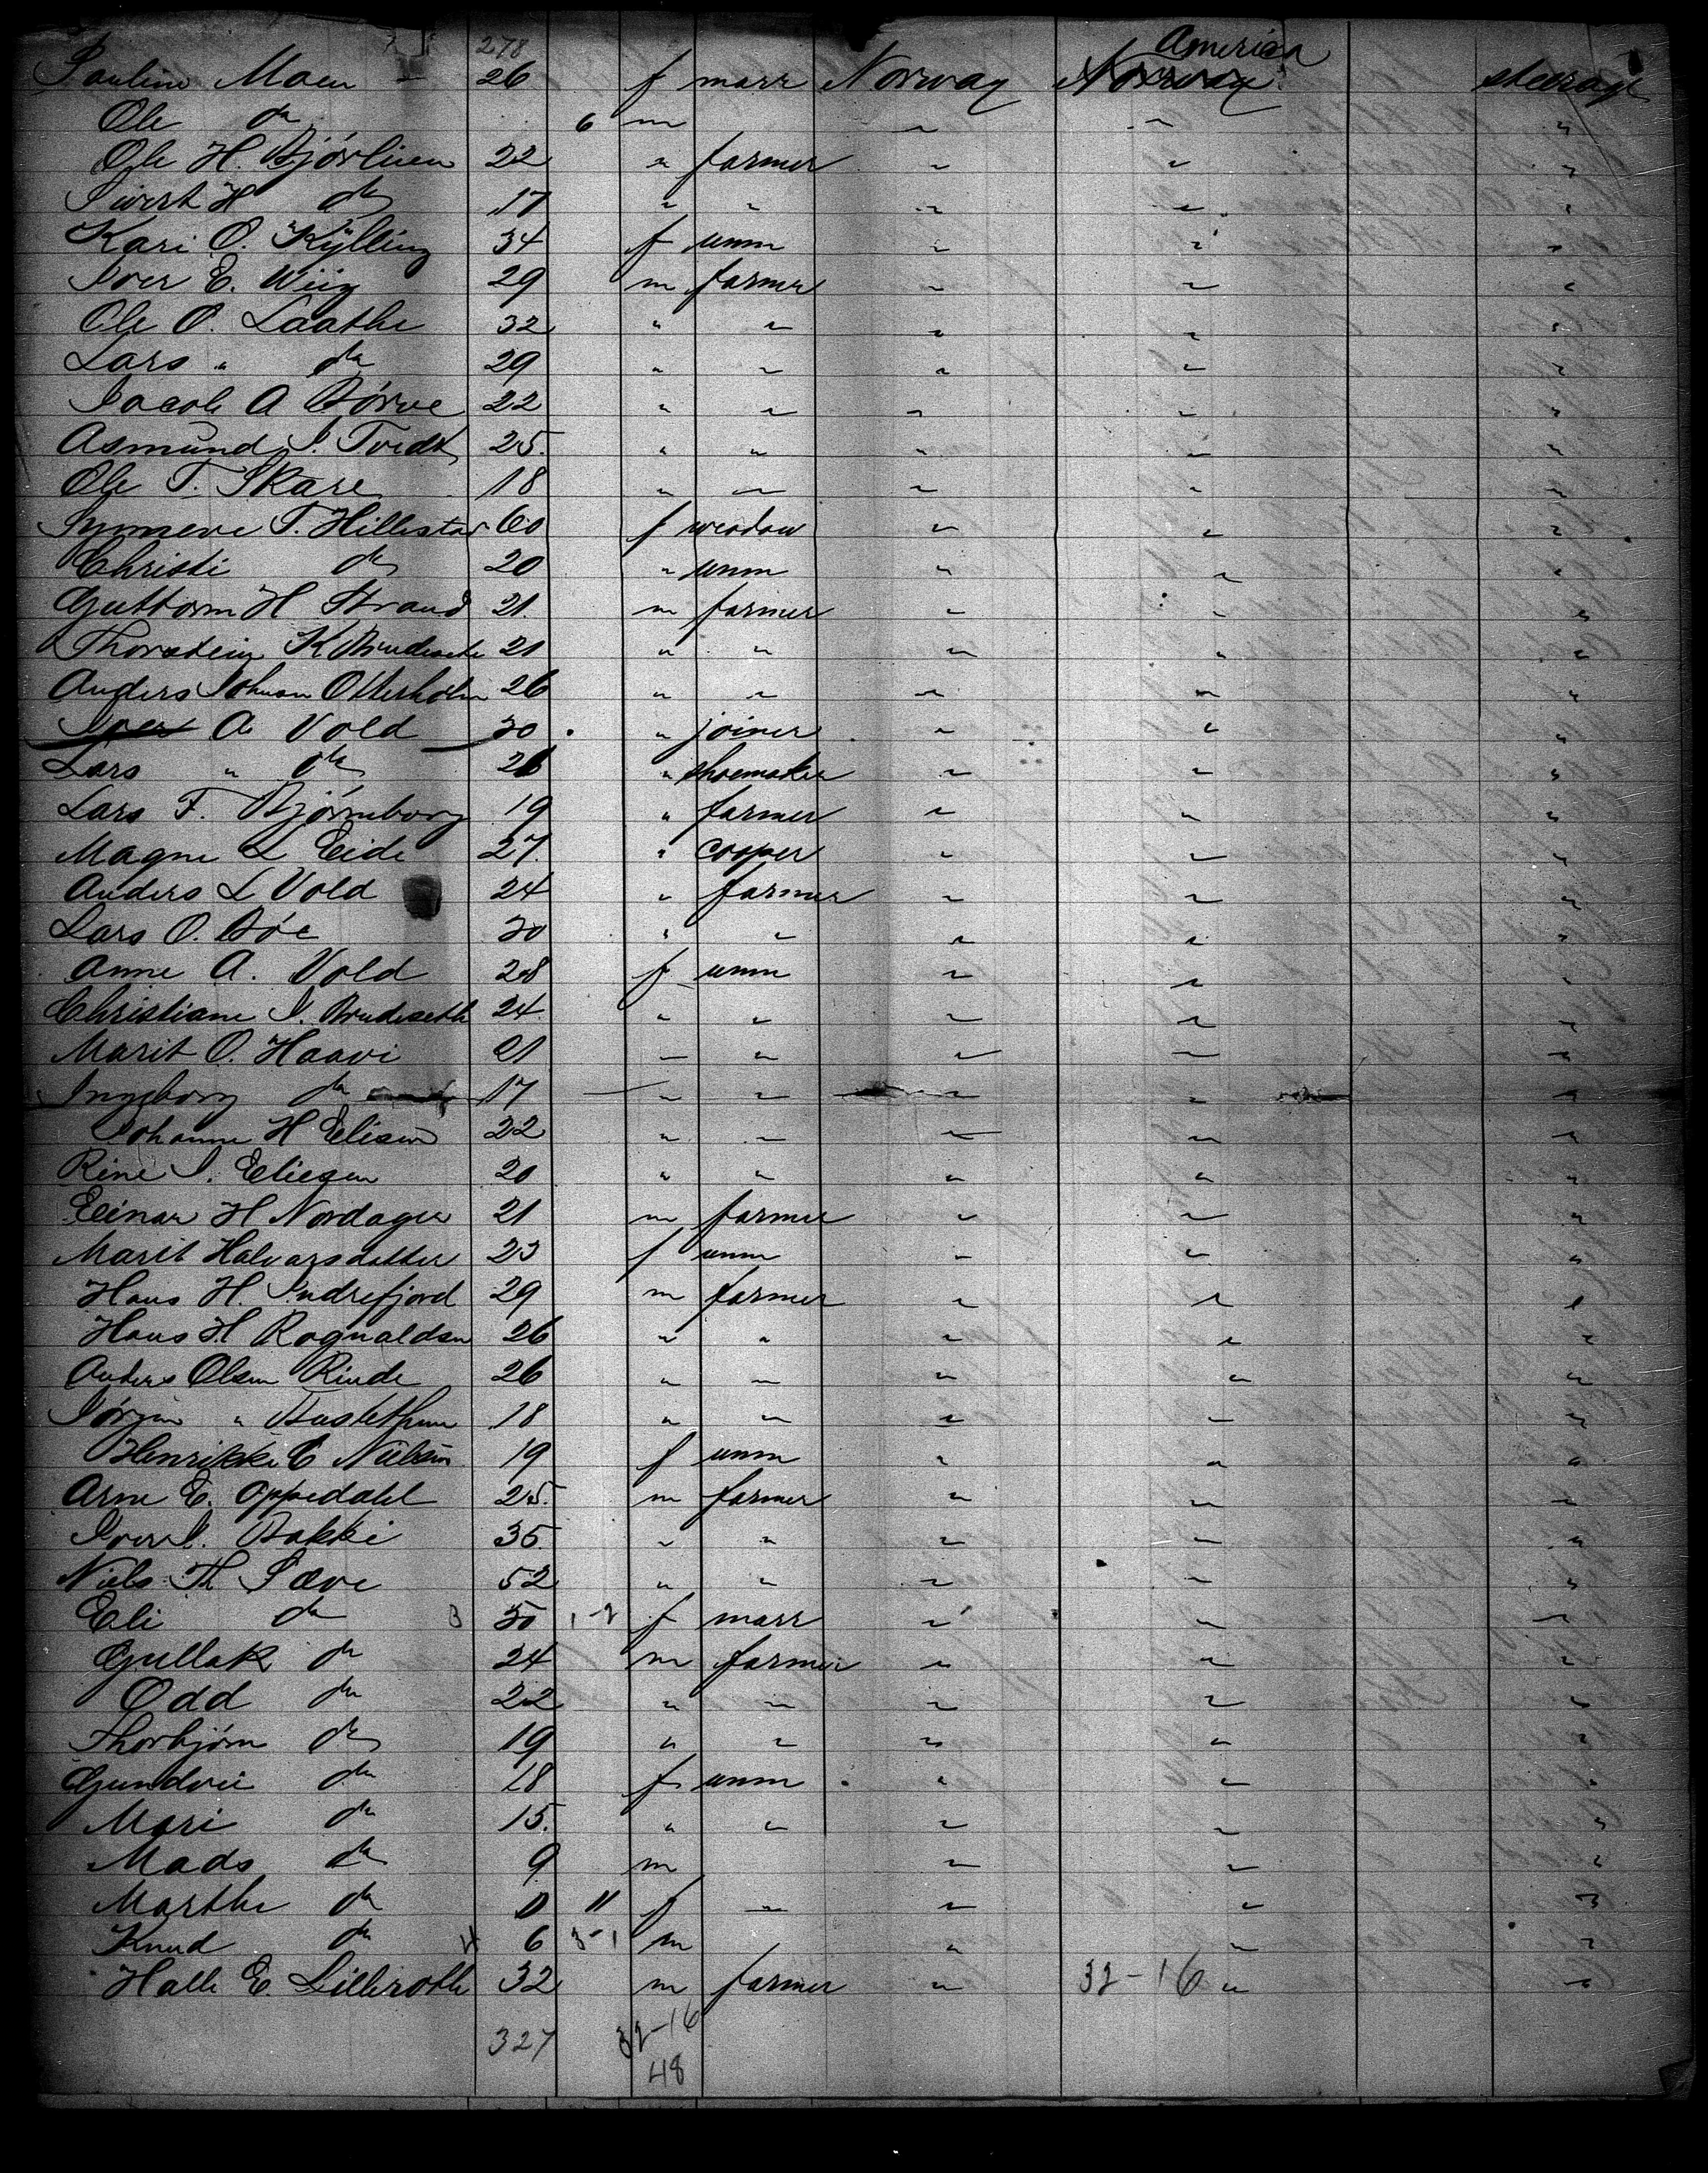 278 America
Pauline Moen - 26 f marr Norway Norway steerage
Ole do 6 m " " "
Ole H. Bjørlien 22 " farmer " " "
Sivert H do 17 " " " " "
Kari O. Kylling 34 f unm " " "
Iver E. Wiig 29 m farmer " " "
Ole O. Laathe 32 " " " " "
Lars " do 29 " " " " "
Jacob A Børve 22 " " " " "
Asmund I. Tvedt 25. " " " " "
Ole T. Skare 18 " " " " "
Synneve T. Hillestad 60 f weodow " " "
Christi do 20 " unm " " "
Guttorm H Strand 21. m farmer " " "
Thorstein K Brudeseth 21 " " " " "
Anders Johnsen Otterholm 26 " " " " "
Iver A Vold 30 " joiner " " "
Lars " do 26 " shoemaker " " "
Lars F. Bjørnborg 19 " farmer " " "
Magne L Eide 27. " cooper " " "
Anders L Vold 24 " farmer " " "
Lars O. Bøe 30 " " " " "
Anne A. Vold 28 f unm " " "
Christiane I. Brudeseth 24. " " " " "
Marit O. Haavi 21 " " " " "
Ingeborg do 17 " " " " "
Johanne H Elisen 22 " " " " "
Rine I. Eliesen 20 " " " " "
Einar H Nordager 21 m farmer " " "
Marit Halvarsdatter 23 f unm " " "
Hans H. Indrefjord 29 m farmer " " "
Hans H Rognaldsen 26 " " " " "
Anders Olsen Rinde 26 " " " " "
Jørgen " 18 " " " " "
Henrikke C Nielsen 19 f unm " " "
Arne E. Oppedahl 25. m farmer " " "
Iver I. Bakke 35 " " " " "
Niels Th Sæve 52 " " " " "
Eli do 3 50 1-2 f marr " " "
Gullak do 24 m farmer " " "
Odd do 22 " " " " "
Thorbjørn do 19 " " " " "
Gundvei do 18 f unm " " "
Mari do 15. " " " " "
Mads do 9 m " " "
Marthe do 11 f " " " "
Knud do 4 6 3-1 m " " "
Halle E. Lilleroth 32 m farmer " 32-16 " "
327 32-16
48